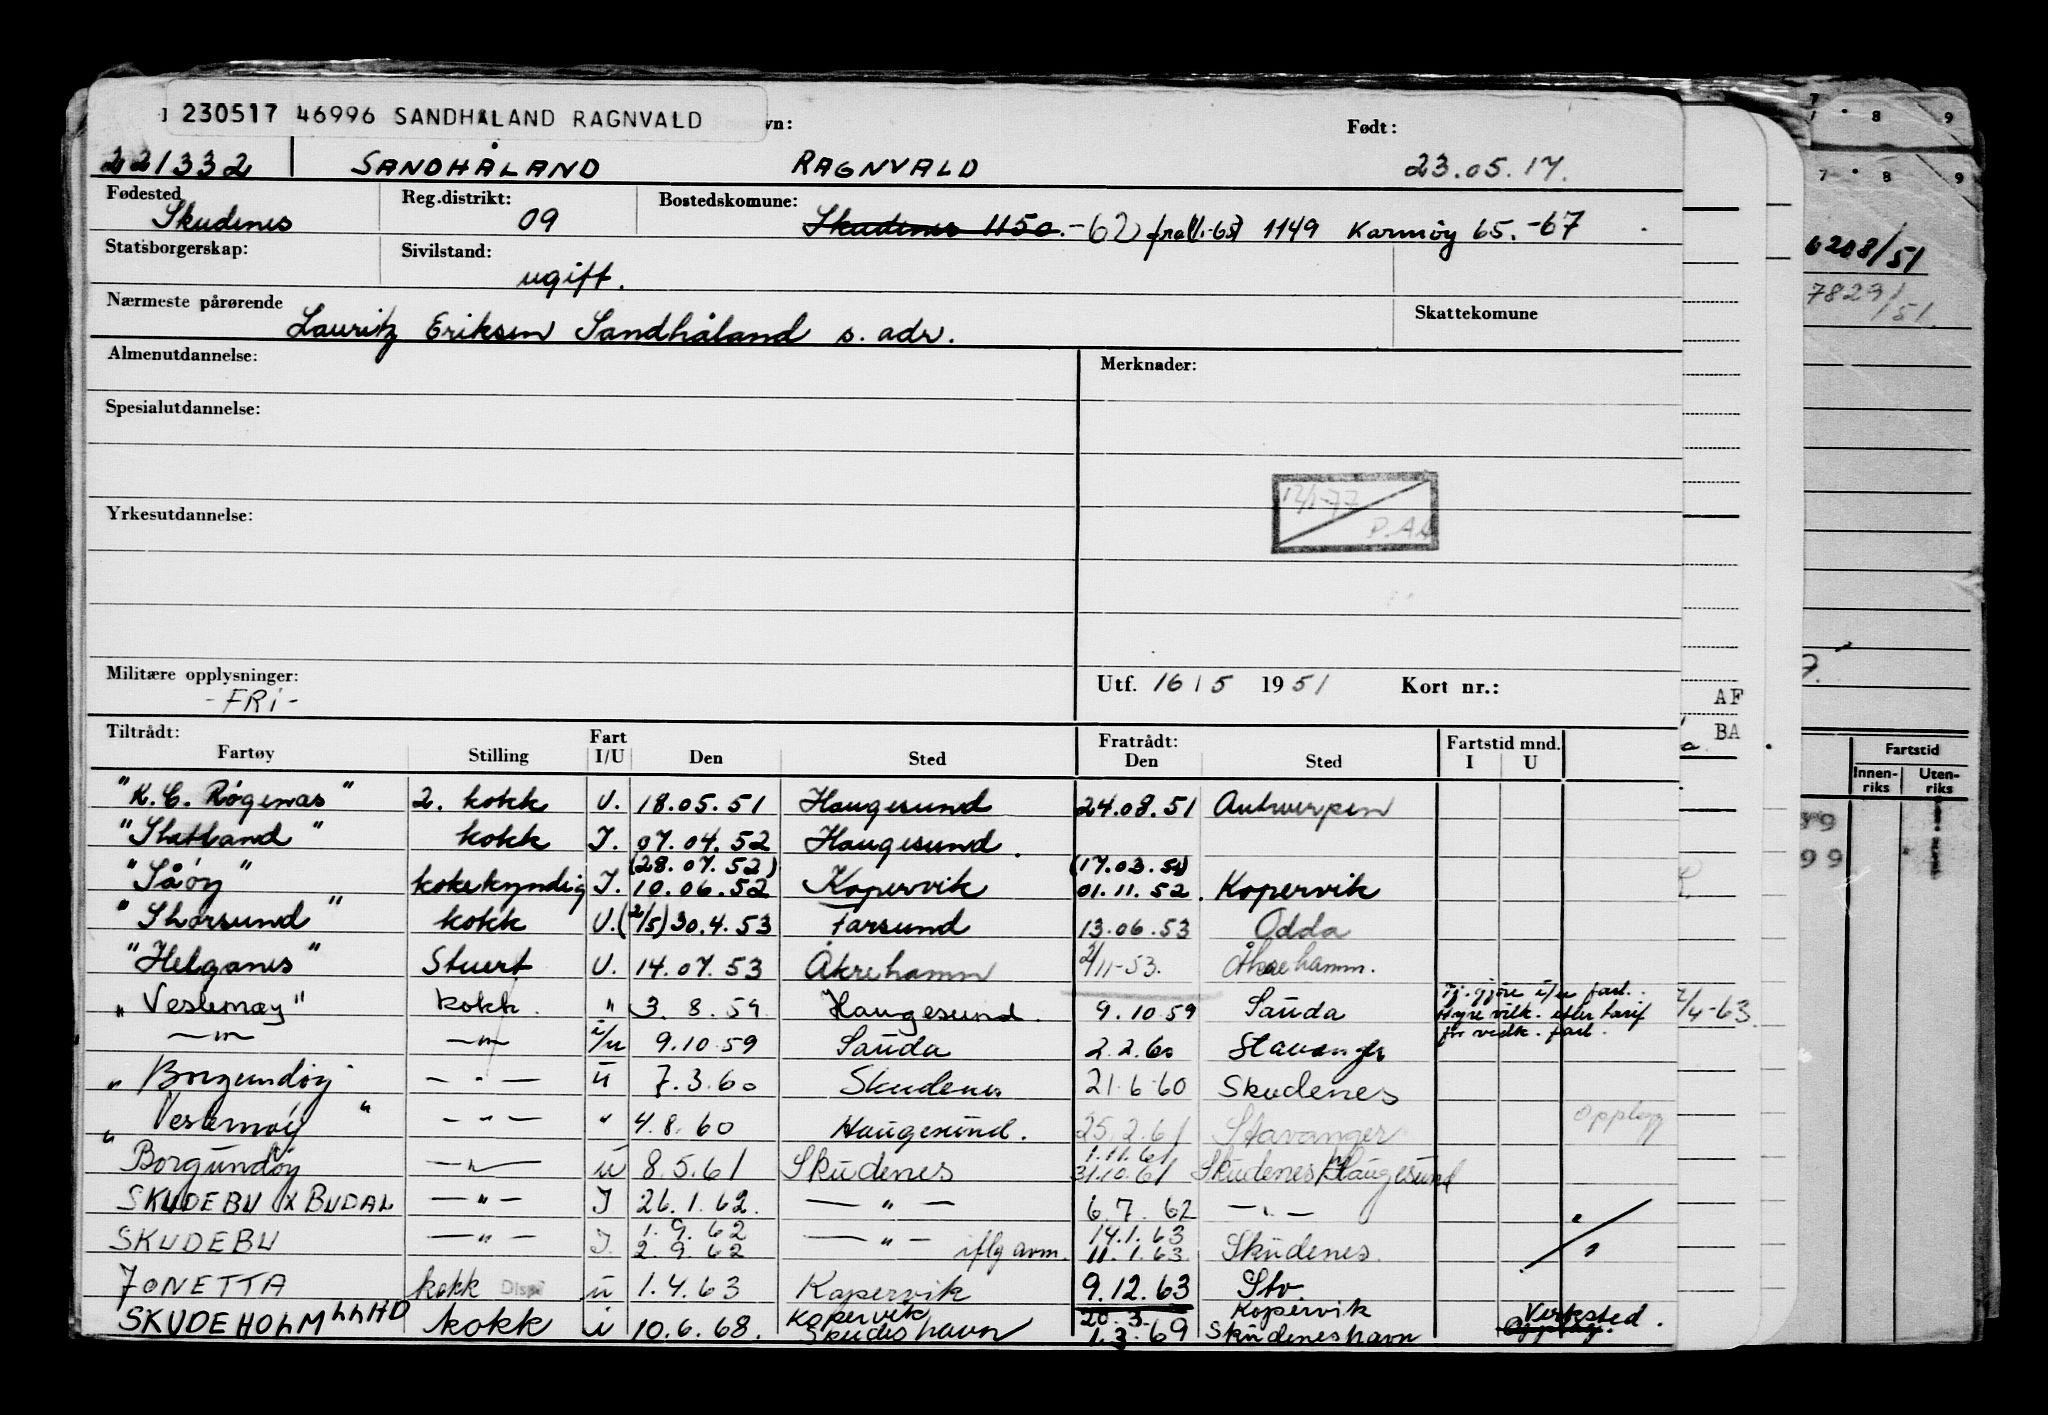 230517 46996 SANDHÅLAND RAGNVALD
vn:
Født:
221332 SANDHÅLAND RAGNVALD 23.05.17.
Fødested Skudenes
Reg.distrikt: 09
Bostedskomune: Skudenes 1150.-62 fra 1149 Karmöy 65.-67
Statsborgerskap:
Sivilstand: ugift.
Nærmeste pårørende Lauritz Eriksen Sandhåland s. adr.
Skattekomune
Almenutdannelse:
Merknader:
Spesialutdannelse:
Yrkesutdannelse:
12/1-77
Militære opplysninger: -FRi-
Utf. 16/5 1951 Kort nr.:
Tiltrådt: Fart Fratrådt: Fartstid mnd.
Fartøy Stilling I/U Den Sted Den Sted I U
"K.C. Røgenæs" 2. kokk U. 18.05.51 Haugesund 24.08.51 Antwerpen
kokk I. 07.04.52 Haugesund.
(28.07.52)
"Såöy" kokekyndig I. 10.06.52 Kopervik 01.11.52. Kopervik
"Thorsund" kokk U. (2/5) 30.4.53 Farsund 13.06.53 Odda
"Helganes" Stuert U. 14.07.53 Åkrehamn 2/11-53. Åkrehamn.
"Vestemøy" kokk. " 3.8.59 Haugesund. 9.10.59 Sauda
—"— —"— i/u 9.10.59 Sauda 2.2.60 Stavanger
"Borgundöy" — " — u 7.3.60 Skudenes 21.6.60 Skudenes
"Vestemøy" — " — " 4.8.60 Haugesund. 25.2.61 Stavanger opplegg
1.11.61
Borgundöy —"— u 8.5.61 Skudenes 31.10.61 Skudenes/Haugesund
SKUDEBU X BUDAL — " — I 26.1.62. — " — 6.7.62 — " —
1.9.62 14.1.63
SKUDEBU — " — I. 2.9.62 — " — iflg avm. 11.1.63 Skudenes.
JONETTA kokk u 1.4.63 Kopervik 9.12.63 Stv
Kopervik 20.3. Kopervik Verksted.
SKUDEHOLM LLHD kokk i 10.6.68. Skudeshavn 1.3.69 Skudeneshavn
7 8 9
7 8 9
6208/51
7829/51.
AF
BA
2/4-63
Fartstid
Innen-riks
Uten-riks
99